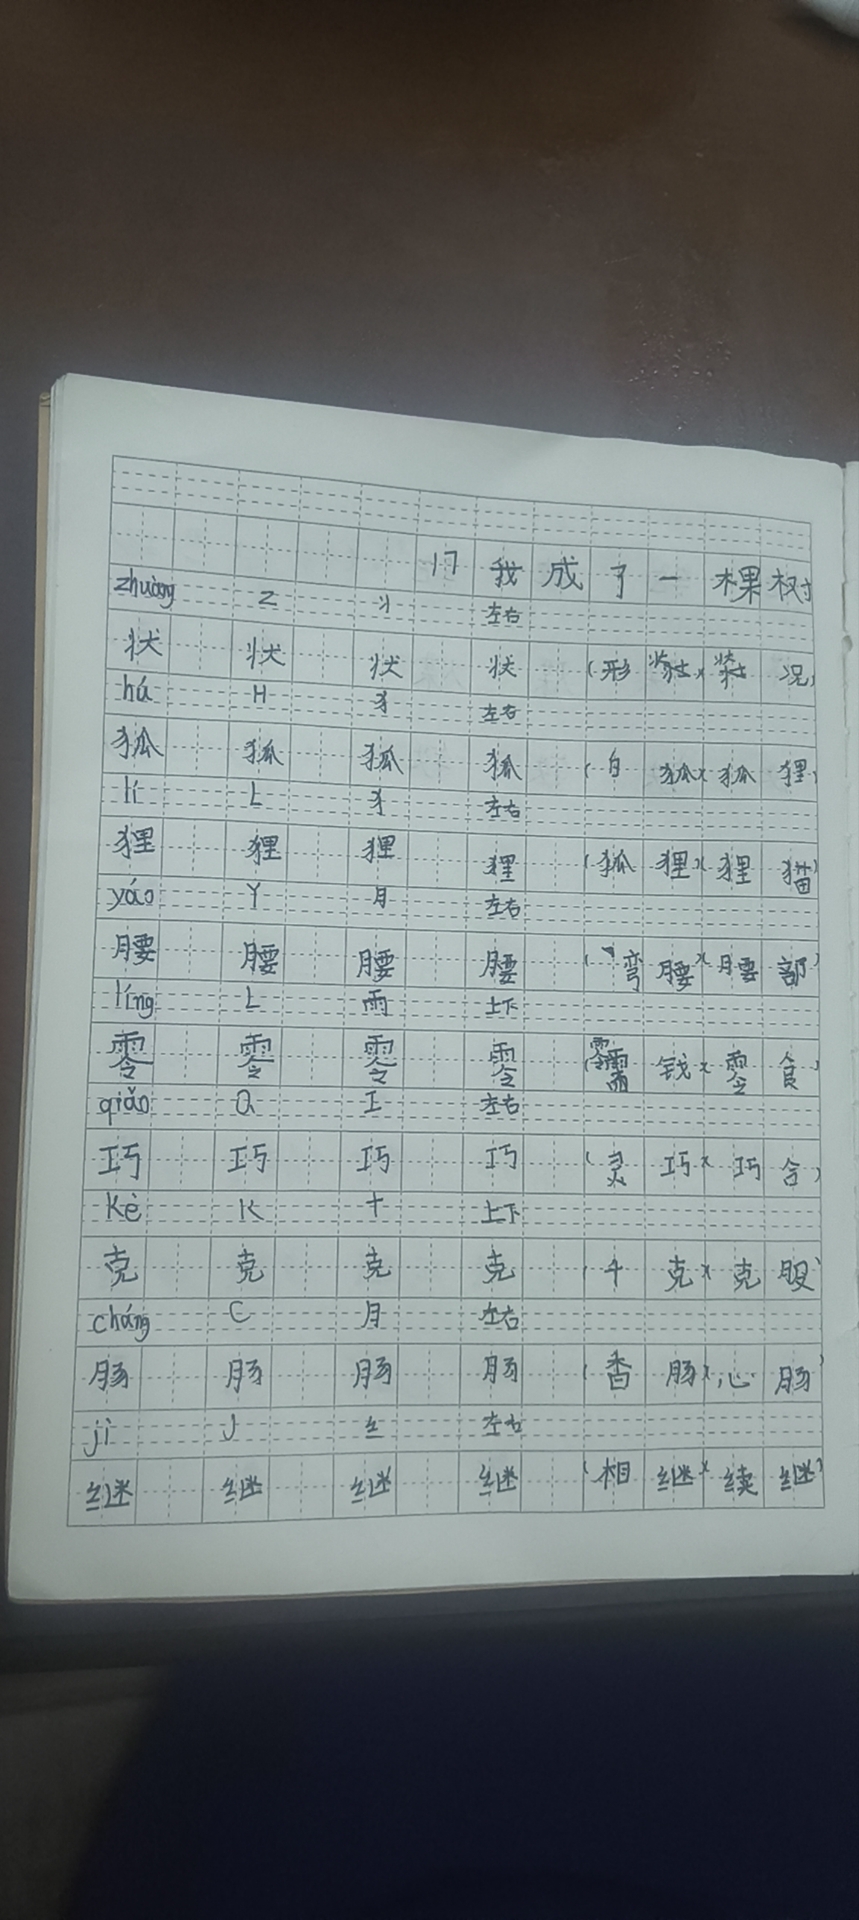 17 我成了一棵树
zhuàng Z 丬 左右
状 状 状 状 (形 )( 况)
hú H 犭 左右
狐 狐 狐 狐 (白狐)(狐狸)
lí L 犭 左右
狸 狸 狸 狸 (狐狸)(狸猫)
yáo Y 月 左右
腰 腰 腰 腰 (弯腰)(腰部)
líng L 雨 上下
零 零 零 零 ( 钱)(零食)
qiǎo Q 工 左右
巧 巧 巧 巧 (灵巧)(巧合)
kè K 十 上下
克 克 克 克 (千克)(克服)
cháng C 月 左右
肠 肠 肠 肠 (香肠)(心肠)
jì J 纟 左右
继 继 继 继 (相继)(续继)